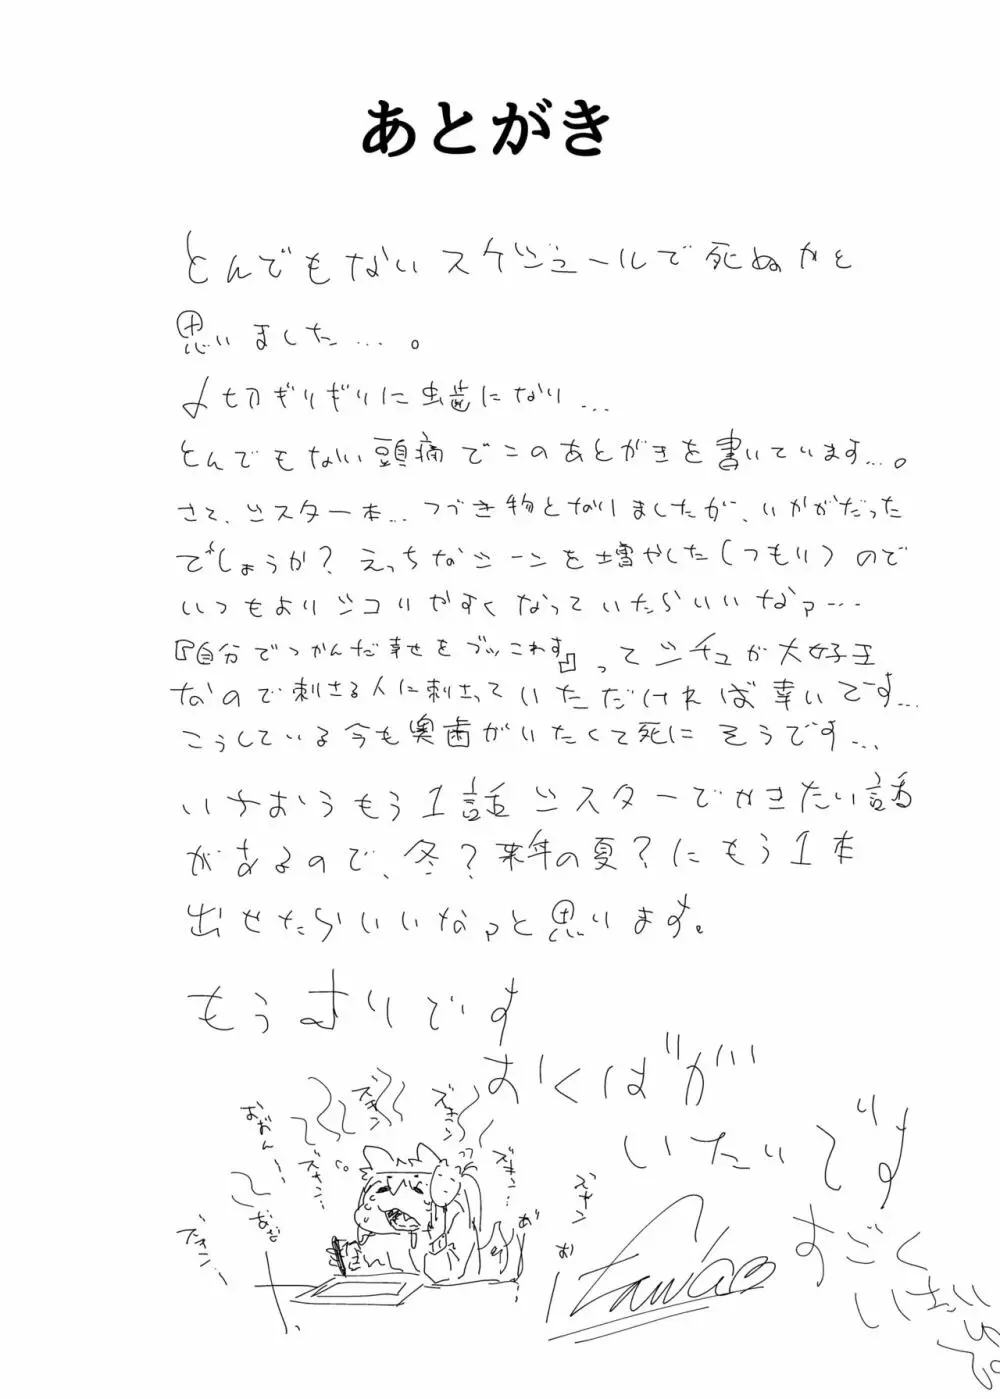 あとがき
とんでもないスケジュールで死ぬかと
思いました…。
〆切ぎりぎりに虫歯になり…
とんでもない頭痛でこのあとがきを書いています…。
さて、シスター本…つづき物となりましたが、いかがだった
でしょうか?えっちなシーンを増やした(つもり)ので
いつもよりシコりやすくなっていたらいいなァ…
『自分でつかんだ幸せをブッこわす』ってシチュが大好王
なので刺さる人に刺さっていただければ幸いです…
こうしている今も奥歯がいたくて死にそうです…
いちおうもう1話シスターでかきたい話
があるので、冬?来年の夏?にもう1本
出せたらいいなァと思います。
もうムリです
おくばが
いたいです
すごく
いたい
ズキン
ズキン
ズキン…
ズキン…
ズキン
ズキン…
おおん…
おお
あ
お